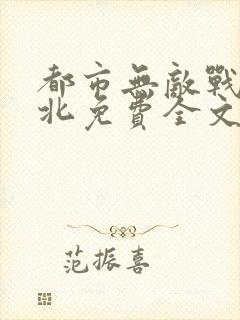 都市無敵戰
北免費全文
范振喜